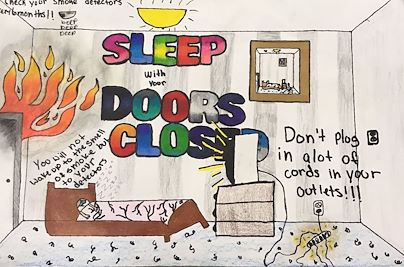 Check your smoke detectors
every 6 months!!
BEEP
BEEP
BEEP
SLEEP
With
Your
DOORS
CLOSED
You will not
wake up to the smell
of smoke but
to your
detectors
Don't plog
in alot of
cords in your
outlets!!!